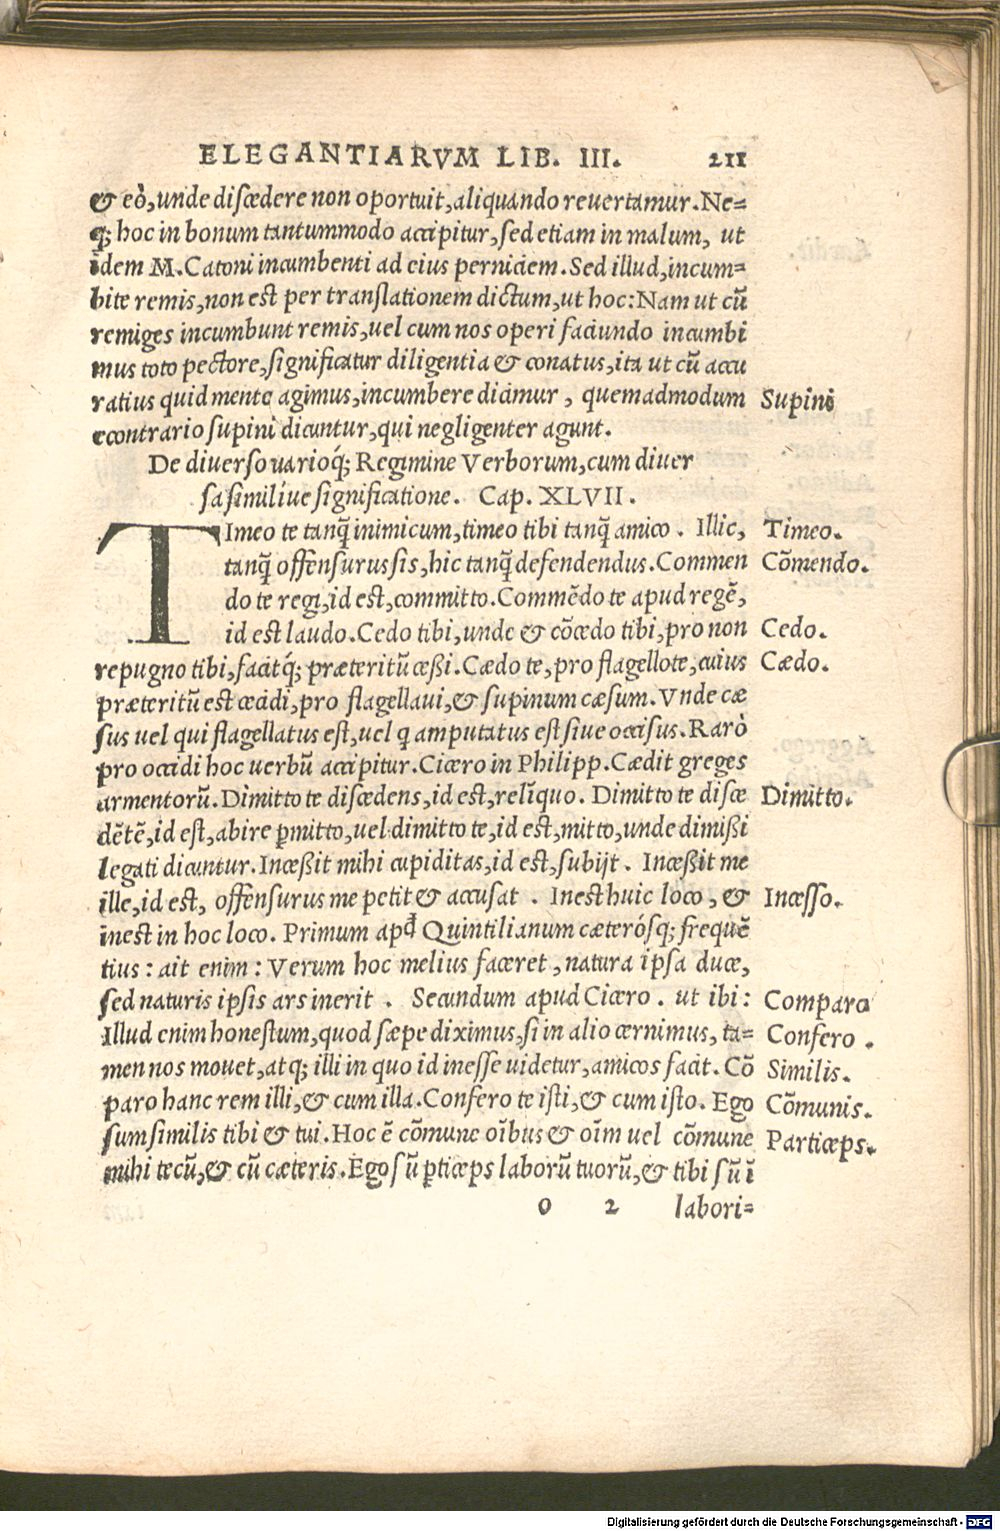 ELEGANTIARVM LIB. III. 211
& eò, unde discedere non oportuit, aliquando reuertamur. Ne=
q; hoc in bonum tantummodo accipitur, sed etiam in malum, ut
idem M. Catoni incumbenti ad eius perniciem. Sed illud, incum=
bite remis, non est per translationem dictum, ut hoc: Nam ut cũ
remiges incumbunt remis, uel cum nos operi faciundo incumbi
mus toto pectore, significatur diligentia & conatus, ita ut cũ accu
ratius quid mente agimus, incumbere dicimur, quemadmodum Supini
econtrario supini dicuntur, qui negligenter agunt.
De diuerso uarioq́; Regimine Verborum, cum diuer
sa similiue significatione. Cap. XLVII.
TImeo te tanq̃ inimicum, timeo tibi tanq̃ amico. Illic, Timeo.
tanq̃ offensurus sis, hic tanq̃ defendendus. Commen Cõmendo.
do te regi, id est, committo. Commẽdo te apud regẽ,
id est laudo. Cedo tibi, unde & cõcedo tibi, pro non Cedo.
repugno tibi, facitq́; præteritũ ceßi. Cædo te, pro flagello te, cuius Cædo.
præteritũ est cecidi, pro flagellaui, & supinum cæsum. Vnde cæ
sus uel qui flagellatus est, uel q amputatus est siue occisus. Rarò
pro occidi hoc uerbũ accipitur. Cicero in Philipp. Cædit greges
armentorũ. Dimitto te discedens, id est, relĩquo. Dimitto te disce Dimitto.
dẽtẽ, id est, abire p̱mitto, uel dimitto te, id est, mitto, unde dimißi
legati dicuntur. Inceßit mihi cupiditas, id est, subijt. Inceßit me
ille, id est, offensurus me petit & accusat. Inest huic loco, & Incesso.
inest in hoc loco. Primum apđ Quintilianum cæterósq; frequẽ
tius: ait enim: Verum hoc melius faceret, natura ipsa duce,
sed naturis ipsis ars inerit. Secundum apud Cicero. ut ibi: Comparo
Illud enim honestum, quod sæpe diximus, si in alio cernimus, ta= Confero.
men nos mouet, atq; illi in quo id inesse uidetur, amicos facit. Cõ Similis.
paro hanc rem illi, & cum illa. Confero te isti, & cum isto. Ego Cõmunis.
sum similis tibi & tui. Hoc ẽ cõmune oĩbus & oĩm uel cõmune Particeps.
mihi tecũ, & cũ cæteris. Ego sũ p̱ticeps laborũ tuorũ, & tibi sũ ĩ
o 2 labori=
Digitalisierung gefördert durch die Deutsche Forschungsgemeinschaft - DFG